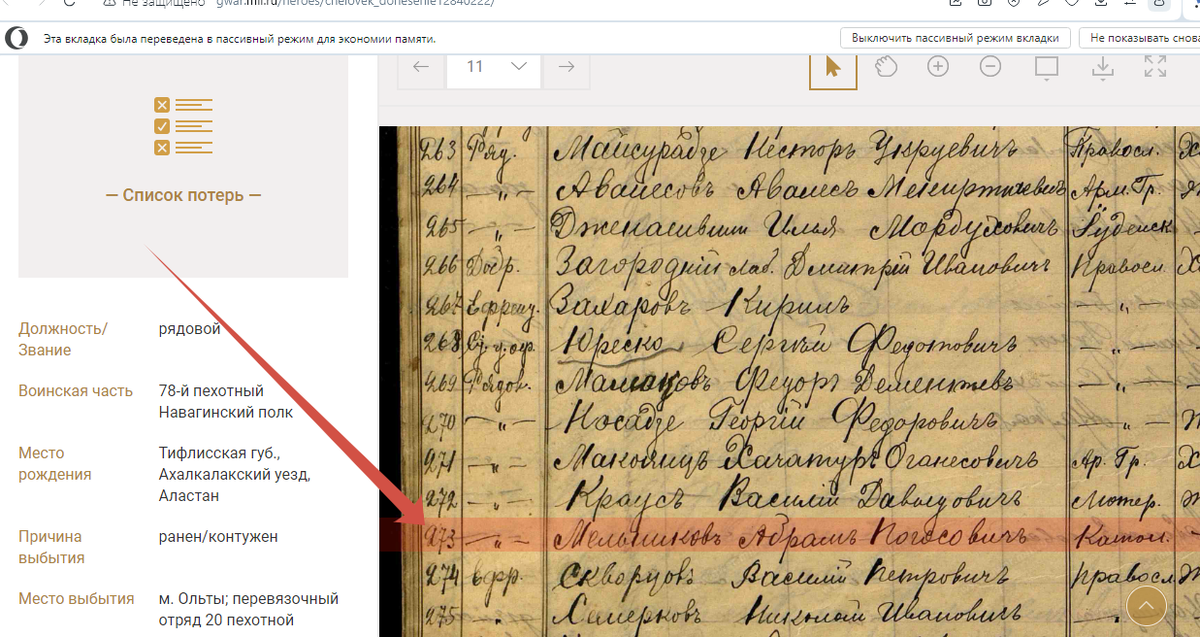 Не защищено gwar.mil.ru/heroes/chelovek_donesenie12840222/
Эта вкладка была переведена в пассивный режим для экономии памяти.
Выключить пассивный режим вкладки
Не показывать снова
11
— Список потерь —
Должность/
Звание
рядовой
Воинская часть
78-й пехотный
Навагинский полк
Место
рождения
Тифлисская губ.,
Ахалкалакский уезд,
Аластан
Причина
выбытия
ранен/контужен
Место выбытия
м. Ольты; перевязочный
отряд 20 пехотной
263 Ряд. Майсурадзе Несторъ Правосл.
264 — „ — Авалесовъ Авалесъ Арм. Гр.
265 — „ — Илья Мордуховичъ Іудейск
266 Добр. Загородній Дмитрій Ивановичъ Правосл.
267 Ефрейт. Захаровъ Кирилъ — „ —
268 Юреско Сергѣй Федотовичъ — „ —
269 Рядов. Федоръ Дементьевъ — „ —
270 — „ — Носадзе Георгій Федоровичъ — „ —
271 — „ — Хачатуръ Оганесовичъ Ар. Гр.
272 — „ — Краусъ Василій Давыдовичъ Лютер.
273 — „ — Мельниковъ Абрамъ Погосовичъ Катол.
274 Ефр. Скворцовъ Василій Петровичъ Правосл
275 — „ Семерковъ Николай Ивановичъ